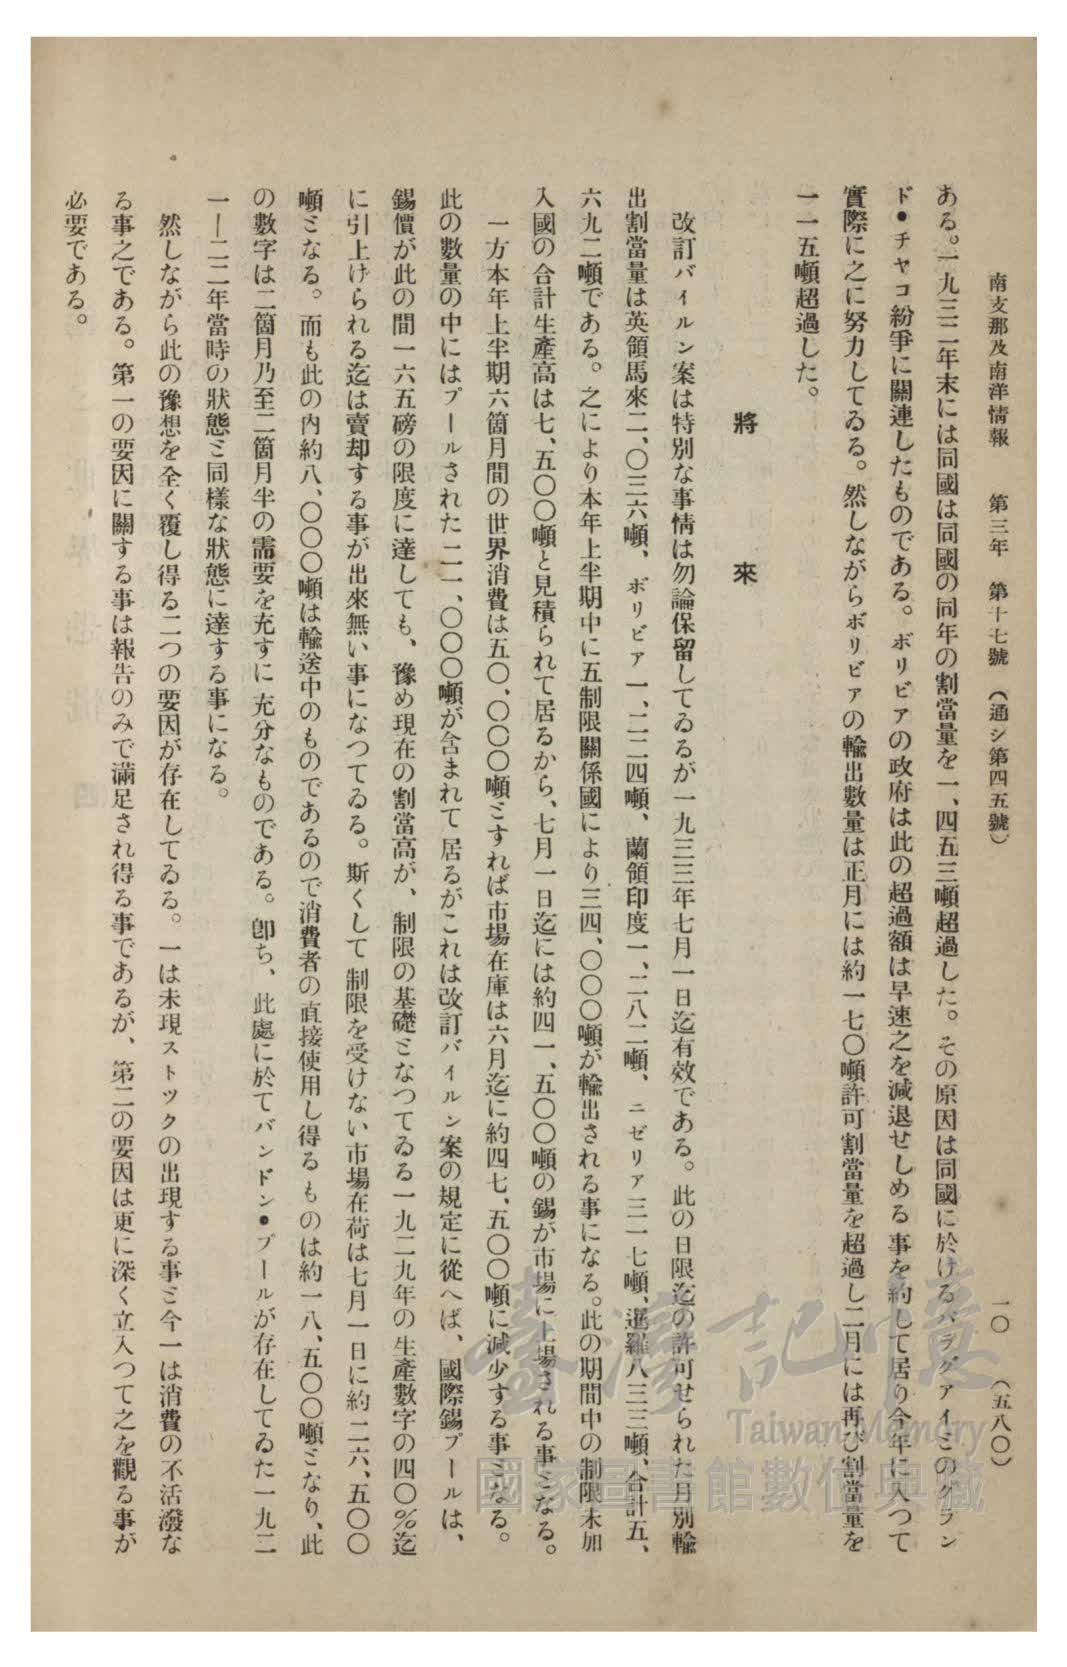 南支那及南洋情報　第三年　第十七號　（通シ第四五號）　一〇　（五八〇）
ある。一九三二年末には同國は同國の同年の割當量を一、四五三噸超過した。その原因は同國に於けるパラグアイミのグラン
ド・チヤコ紛爭に關連したものである。ボリビアの政府は此の超過額は早速之を減退せしめる事を約して居り今年に入つて
實際に之に努力してゐる。然しながらボリビアの輸出數量は正月には約一七〇噸許可割當量を超過し二月には再び割當量を
一一五噸超過した。
將來
改訂バイルン案は特別な事情は勿論保留してゐるが一九三三年七月一日迄有效である。此の日限迄の許可せられた月別輸
出割當量は英領馬來二、〇三六噸、ボリビア一、二二四噸、蘭領印度一、二八二噸、ニゼリア三一七噸、暹羅八三三噸、合計五、
六九二噸である。之により本年上半期中に五制限關係國により三四、〇〇〇噸が輸出される事になる。此の期間中の制限未加
入國の合計生產高は七、五〇〇噸と見積られて居るから、七月一日迄には約四一、五〇〇噸の錫が市場に上場される事ミなる。
一方本年上半期六箇月間の世界消費は五〇、〇〇〇噸ミすれば市場在庫は六月迄に約四七、五〇〇噸に減少する事ミなる。
此の數量の中にはプールされた二一、〇〇〇噸が含まれて居るがこれは改訂バイルン案の規定に從へば、國際錫プールは、
錫價が此の間一六五磅の限度に達しても、豫め現在の割當高が、制限の基礎ミなつてゐる一九二九年の生產數字の四〇％迄
に引上げられる迄は賣却する事が出來無い事になつてゐる。斯くして制限を受けない市場在荷は七月一日に約二六、五〇〇
噸ミなる。而も此の內約八、〇〇〇噸は輸送中のものであるので消費者の直接使用し得るものは約一八、五〇〇噸ミなり、此
の數字は二箇月乃至二箇月半の需要を充すに充分なものである。卽ち、此處に於てバンドン・プールが存在してゐた一九二
一―二二年當時の狀態ミ同樣な狀態に達する事になる。
然しながら此の豫想を全く覆し得る二つの要因が存在してゐる。一は未現ストツクの出現する事ミ今一は消費の不活潑な
る事之である。第一の要因に關する事は報告のみで滿足され得る事であるが、第二の要因は更に深く立入つて之を觀る事が
必要である。
臺灣記憶
Taiwan Memory
國家圖書館數位典藏